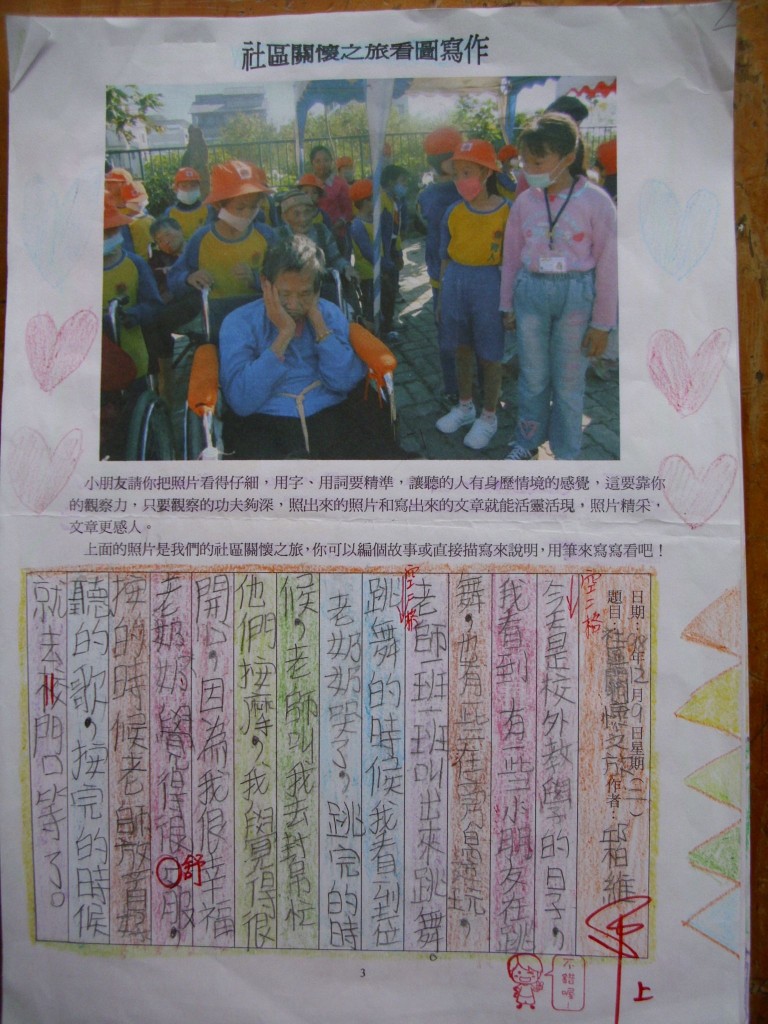 社區關懷之旅看圖寫作
小朋友請你把照片看得仔細，用字、用詞要精準，讓聽的人有身歷情境的感覺，這要靠你
的觀察力，只要觀察的功夫夠深，照出來的照片和寫出來的文章就能活靈活現，照片精采，
文章更感人。
上面的照片是我們的社區關懷之旅，你可以編個故事或直接描寫來說明，用筆來寫寫看吧！
日期：98年12月9日星期(三)
題目：社區關懷之旅 作者：邱柏維
空二格
今天是校外教學的日子，
我看到有一些小朋友在跳
舞，也有一些在旁邊玩，
空二格
老師一班一班叫出來跳舞。
跳舞的時候我看到一位
老奶奶哭了，跳完的時
候，老師叫我去幫忙
他們按摩，我覺得很
開心，因為我很幸福
老奶奶覺得很服，
舒
按的時候老師放首好
聽的歌，按完的時候
就去校門口等了。
上
不錯喔~
3